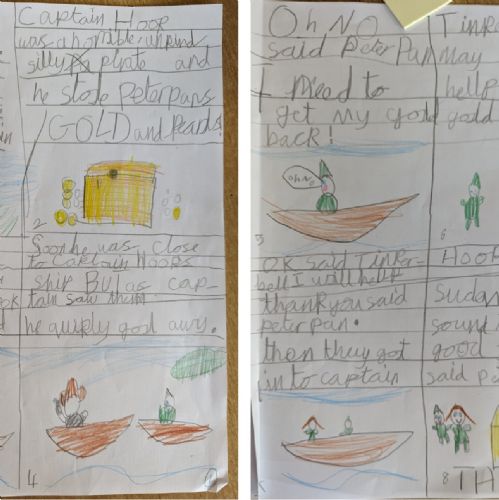 Captain Hook
was a horrible, unkind
silly pirate and
he stole Peterpans
GOLD and Pearls!
2
Soon he was close
to captain Hooks
ship But as cap-
tain saw them
he quikly
4
Oh No
said Peter Pan
I need to
get my gold
back!
oh no
5
OK said Tinker-
bell I will help
thankyou said
peter pan.
then they got
in to captain
Tinke
may
help
gold
6
Hook
Sudan
sound
good
said pa
8
TH